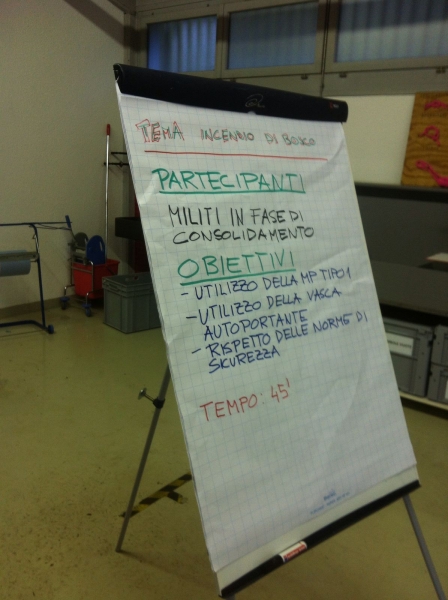 TEMA INCENDIO DI BOSCO
PARTECIPANTI
MILITI IN FASE DI
CONSOLIDAMENTO
OBIETTIVI
- UTILIZZO DELLA MP TIPO 1
- UTILIZZO DELLA VASCA
AUTOPORTANTE
- RISPETTO DELLE NORME DI
SICUREZZA
TEMPO: 45'